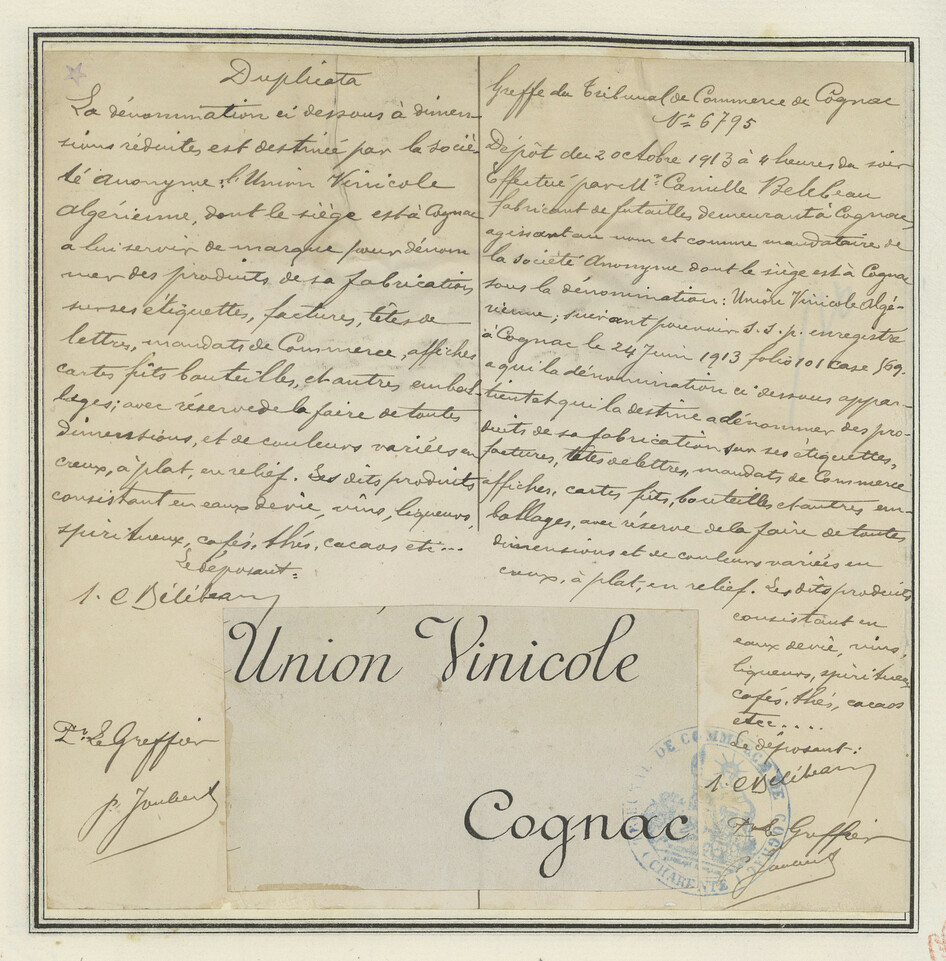 Duplicata
La dénomination ci dessous à dimen-
sions réduites est destinée par la socié-
té Anonyme: l'Union Vinicole
Algérienne, dont le siège est à Cognac
a lui servir de marque pour dénom
mer des produits de sa fabrication
sur ses étiquettes, factures, têtes de
lettres, mandats de Commerce, affiches
cartes fûts bouteilles, et autres embal-
lages; avec réserve de la faire de toutes
dimensions, et de couleurs variées en
creux, à plat, en relief. Les dits produits
consistant en eaux de vie, vins, liqueurs,
spiritueux, cafés, thés, cacaos etc...
Le déposant:
Greffe du Tribunal de Commerce de Cognac
N° 6795
Dépôt du 2 octobre 1913 à 4 heures du soir
Effectué par Mr. Camille
fabricant de futailles demeurant à Cognac,
agissant au nom et comme mandataire de
la société Anonyme dont le siège est à Cognac
sous la dénomination: Union Vinicole Algé-
rienne; suivant pouvoir s.s.p. enregistré
à Cognac le 24 Juin 1913 folio 101 case 569.
a qui la dénomination ci dessous appar-
tient et qui la destine a dénommer des pro-
duits de sa fabrication sur ses étiquettes,
factures, têtes de lettres, mandats de Commerce
affiches, cartes fûts, bouteilles et autres em-
ballages, avec réserve de la faire de toutes
dimensions et de couleurs variées en
creux, à plat, en relief. Les dits produits
consistant en
eaux de vie, vins,
liqueurs, spiritueux
cafés, thés, cacaos
etc....
Le déposant:
Union Vinicole
Cognac
Pr. Le Greffier
P. Joubert
Pr Le Greffier
Joubert
TRIBUNAL DE COMMERCE DE COGNAC
CHARENTE